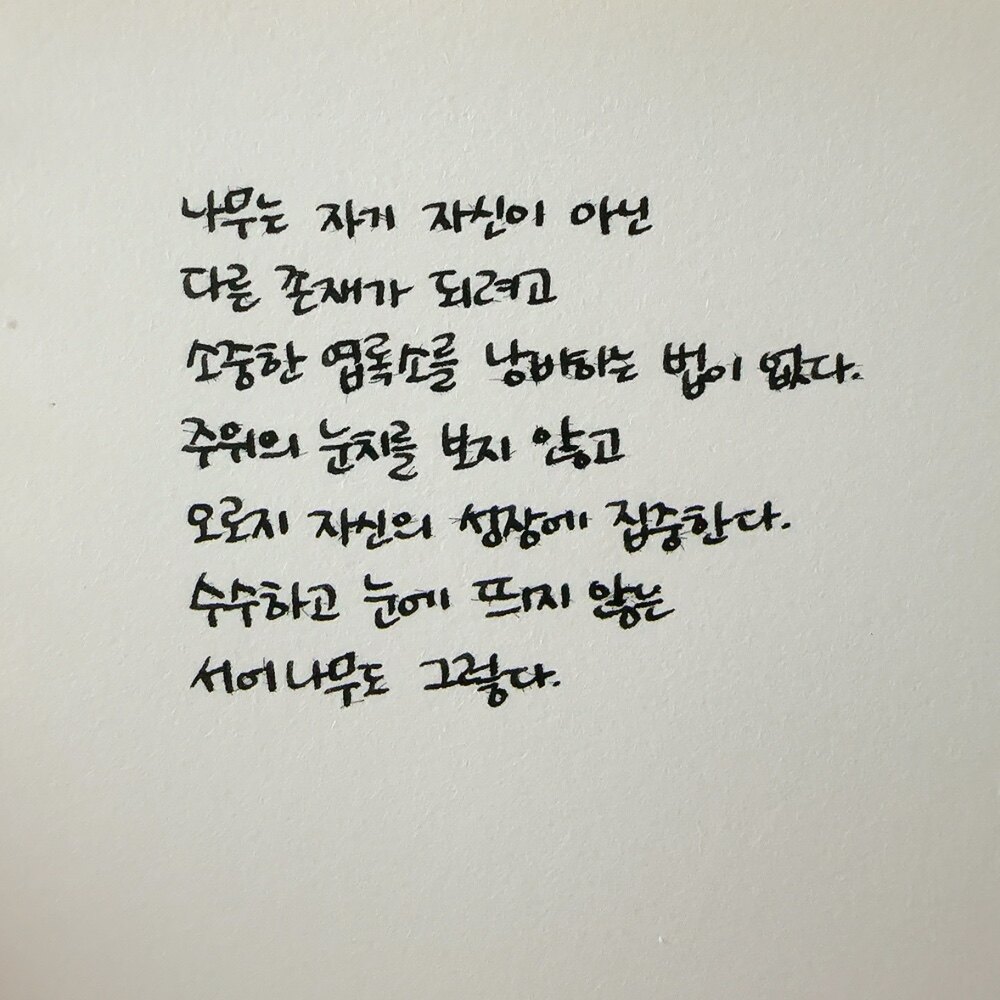 나무는 자기 자신이 아닌
다른 존재가 되려고
소중한 엽록소를 낭비하는 법이 없다.
주위의 눈치를 보지 않고
오로지 자신의 성장에 집중한다.
수수하고 눈에 띄지 않는
서어나무도 그렇다.